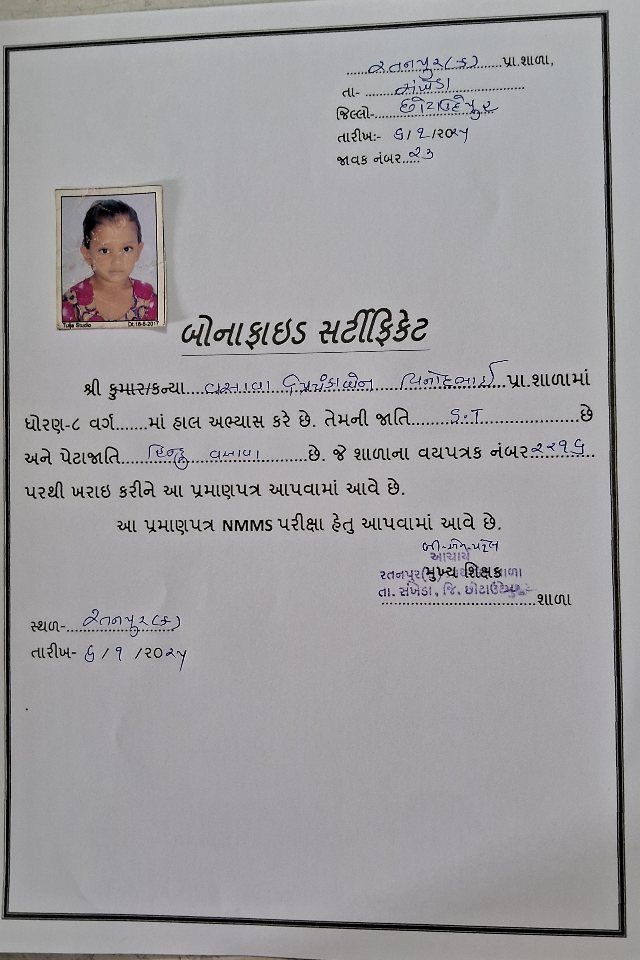 રતનપુર(ક) પ્રા.શાળા,
તા- સંખેડા
જિલ્લો- છોટાઉદેપુર
તારીખ:- ૬/૧/૨૦૨૫
જાવક નંબર.....૨૩
Tulja Studio Dt.16-5-2017
બોનાફાઇડ સર્ટીફિકેટ
શ્રી કુમાર/કન્યા વસાવા પ્રિયંકાબેન વિનોદભાઈ પ્રા.શાળામાં
ધોરણ-૮ વર્ગ.......માં હાલ અભ્યાસ કરે છે. તેમની જાતિ S.T છે
અને પેટાજાતિ હિન્દુ વસાવા છે. જે શાળાના વયપત્રક નંબર ૨૨૧૬
પરથી ખરાઇ કરીને આ પ્રમાણપત્ર આપવામાં આવે છે.
આ પ્રમાણપત્ર NMMS પરીક્ષા હેતુ આપવામાં આવે છે.
આચાર્ય
રતનપુર મુખ્ય શિક્ષક શાળા
તા. સંખેડા, જિ. છોટાઉદેપુર
શાળા
સ્થળ- રતનપુર(ક)
તારીખ- ૬/૧/૨૦૨૫